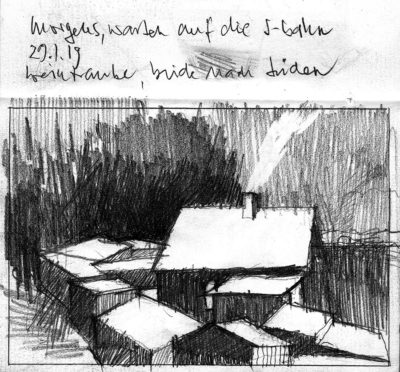 morgens, warten auf die S-bahn
29.1.19
weintraube, blick nach süden